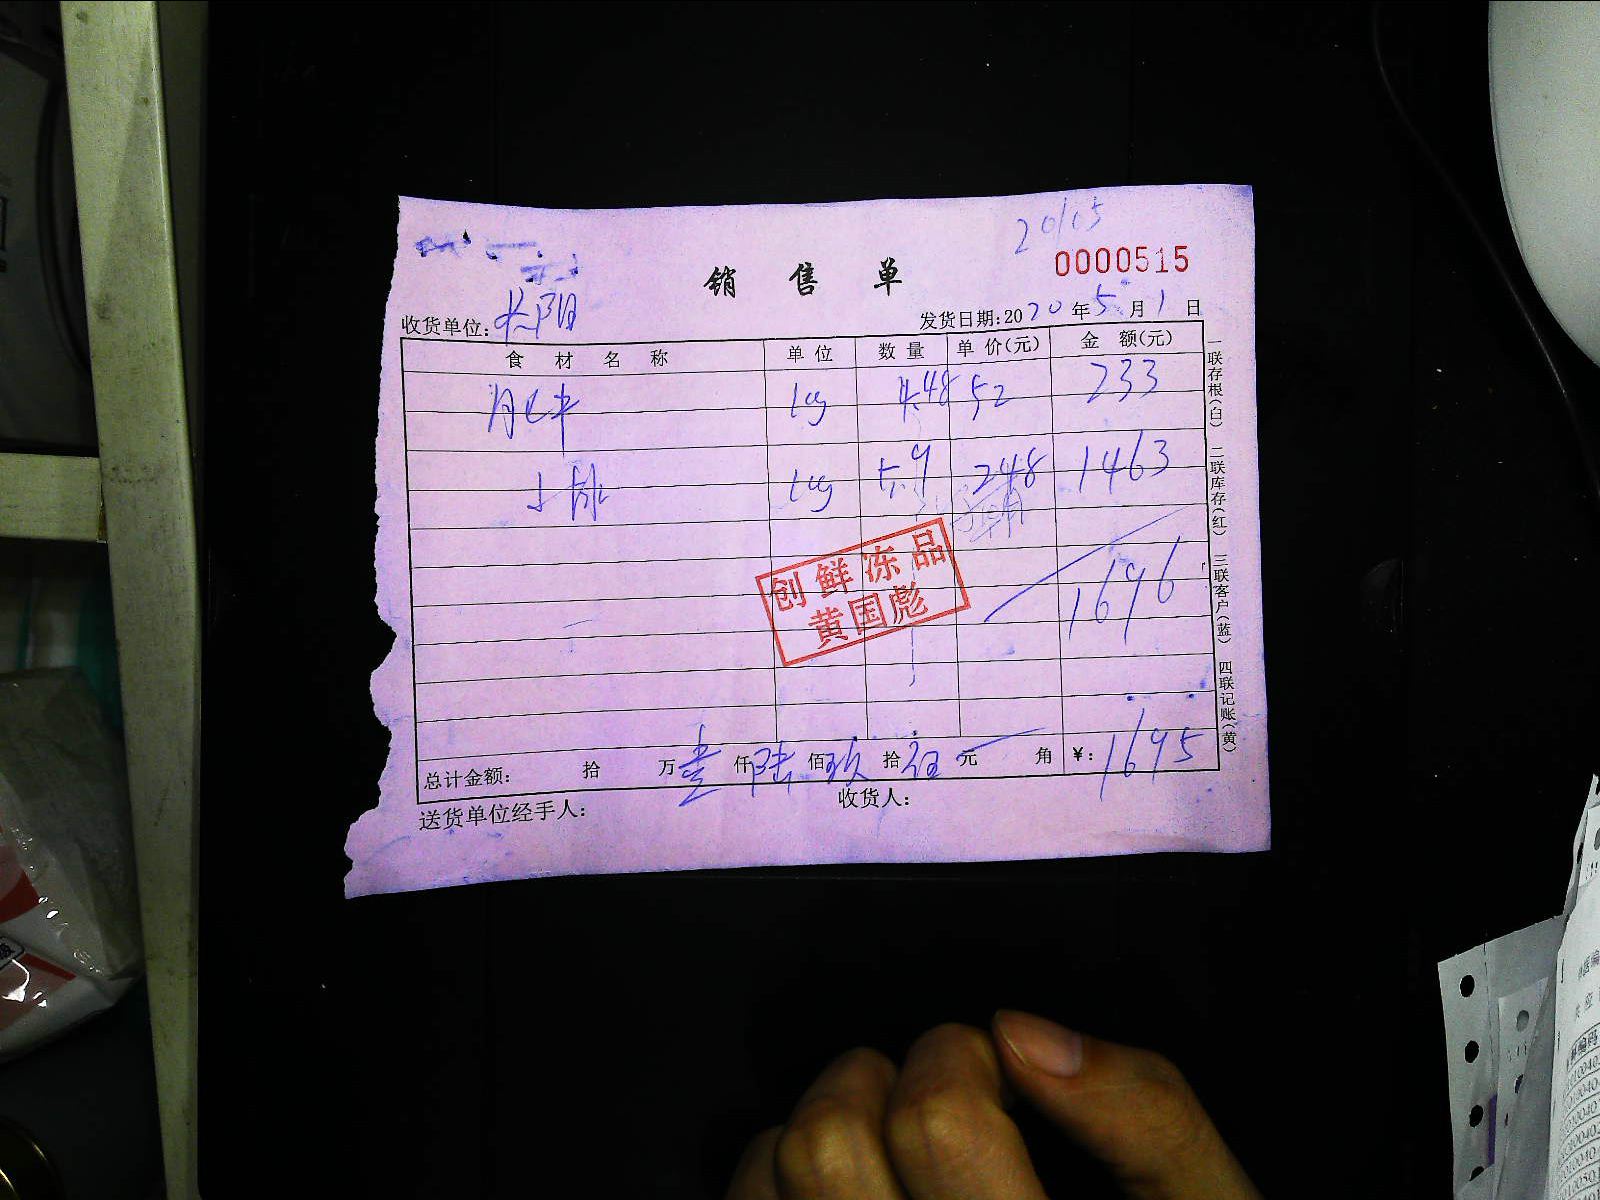 20/05
0000515
销售单
收货单位: 长阳
发货日期:2020年5月1日
食材名称 单位 数量 单价(元) 金额(元)
肥牛 kg 4.48 52 233
kg 5.9 248 1463
创鲜冻品
黄国彪
1696
总计金额: 拾 万壹仟陆佰玖拾伍元 角 ¥: 1695
送货单位经手人: 收货人:
一联存根(白) 二联库存(红) 三联客户(蓝) 四联记账(黄)